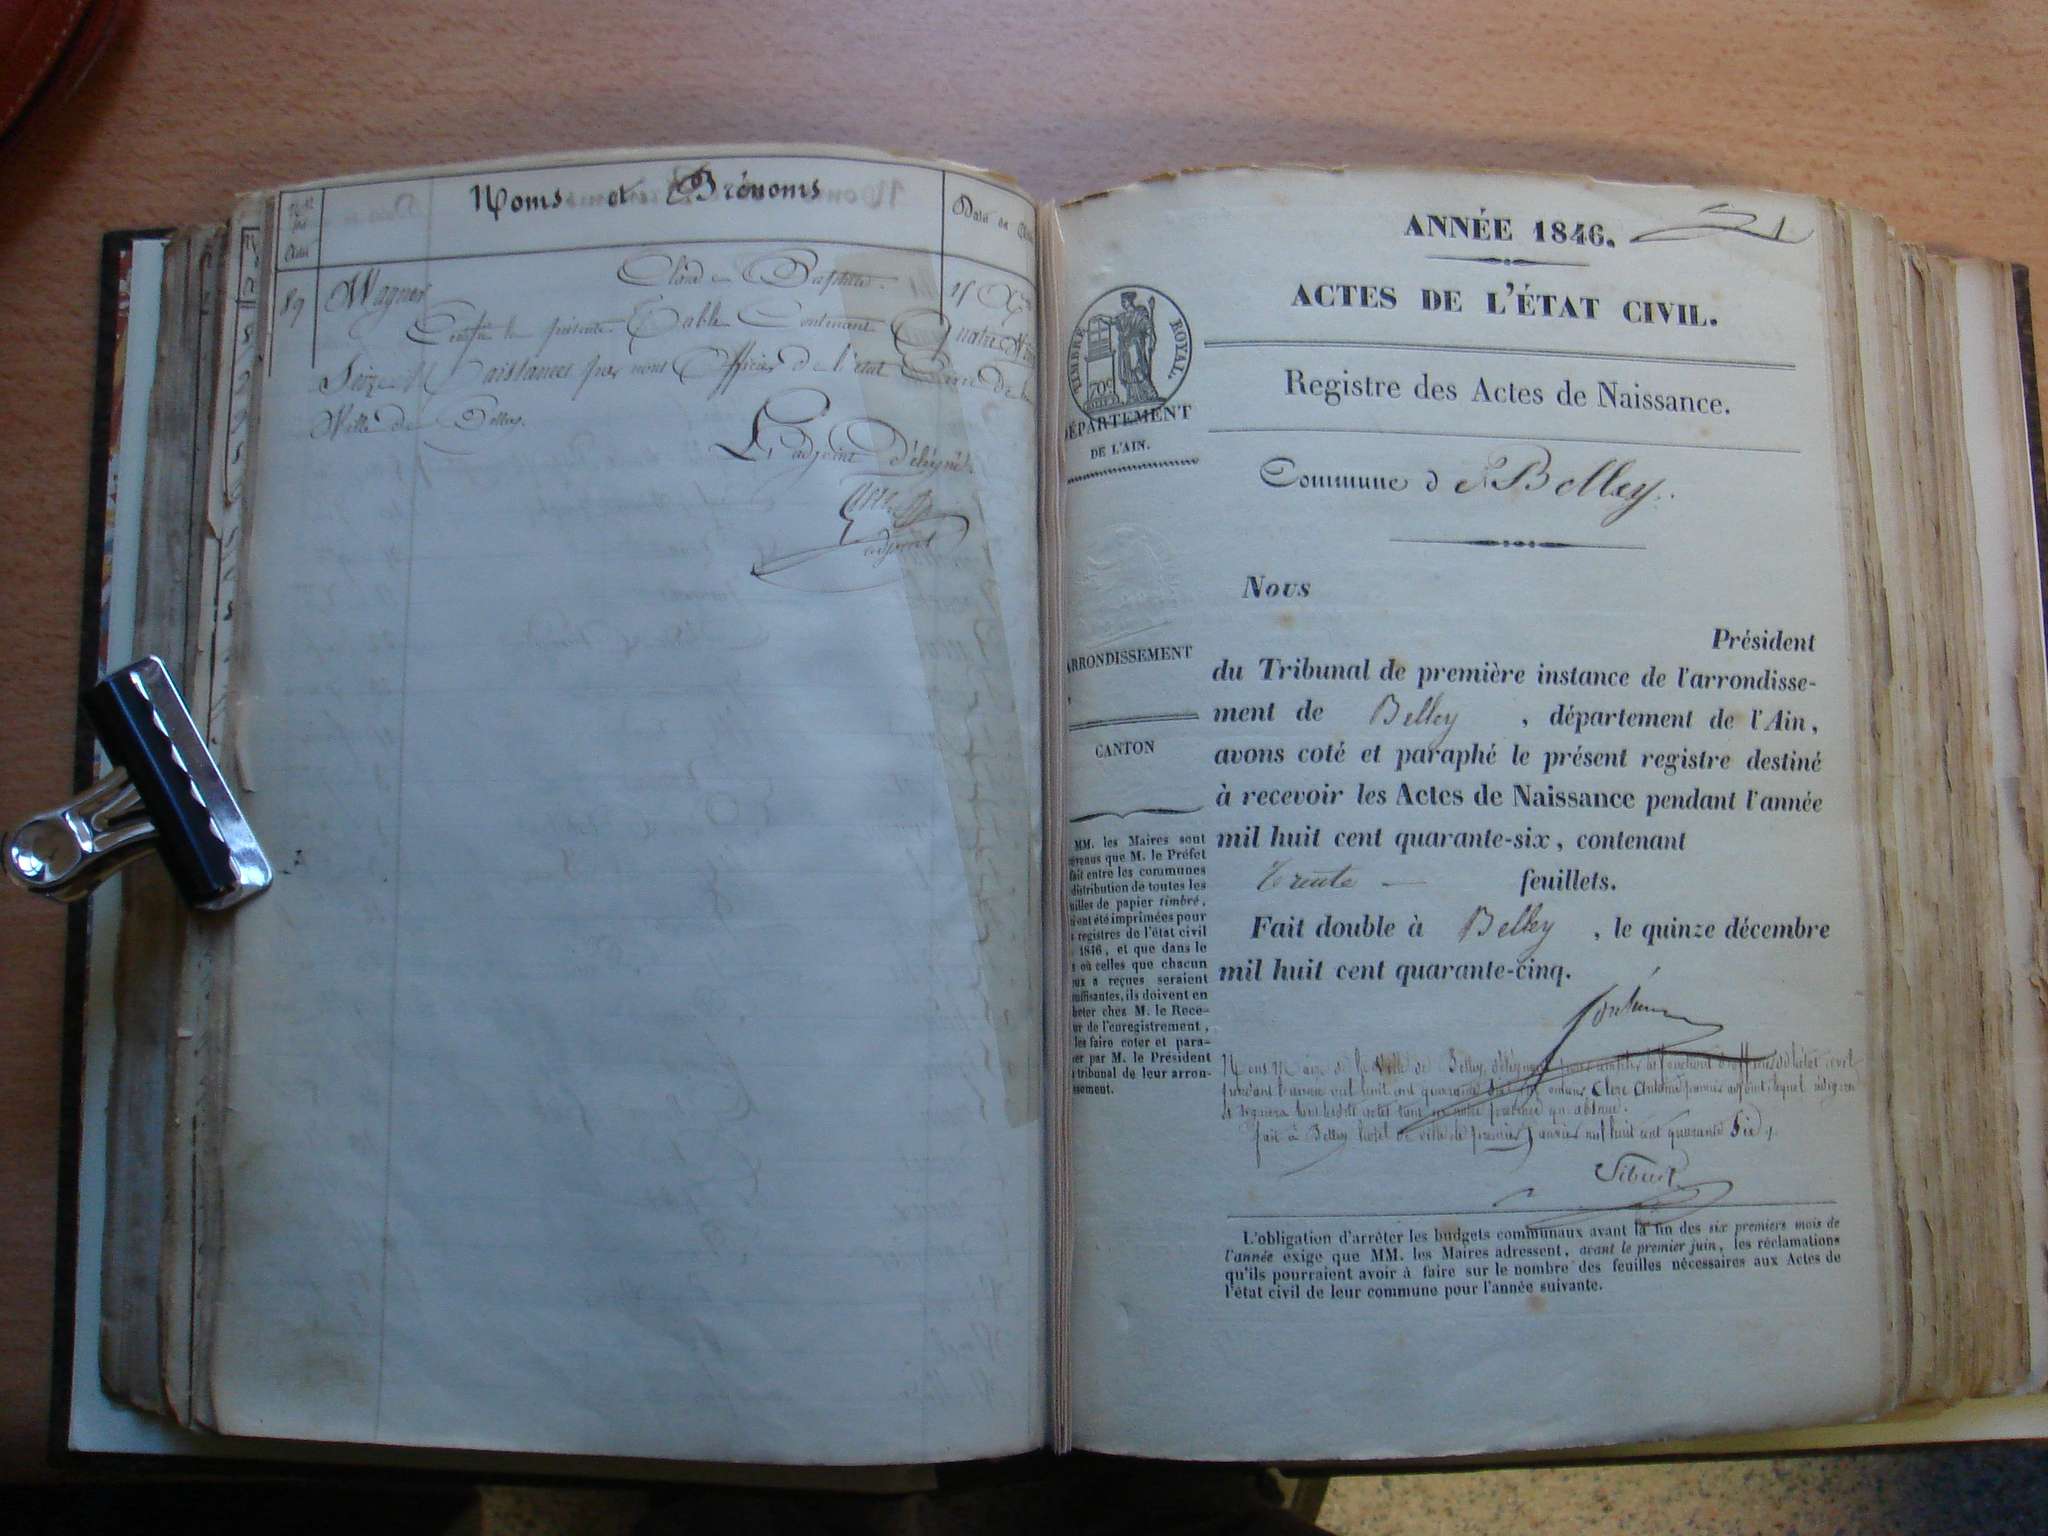 Nos
des
Actes
Noms et Prénoms
Date
89 Wagner Claude 15 Xbre
Certifié la présente Table Contenant Quatre Vingt
Seize Naissances par nous Officier de l'état Civil de la
Ville de Belley.
L'adjoint Délégué
adjoint
ANNÉE 1846.
ACTES DE L'ÉTAT CIVIL.
TIMBRE ROYAL.
70c
DÉPARTEMENT
DE L'AIN.
Registre des Actes de Naissance.
Commune de Belley.
ARRONDISSEMENT
CANTON
MM. les Maires sont
évenus que M. le Préfet
fait entre les communes
distribution de toutes les
uilles de papier timbré,
ont été imprimées pour
s registres de l'état civil
1846, et que dans le
s où celles que chacun
eux a reçues seraient
uffisantes, ils doivent en
heter chez M. le Rece-
ur de l'enregistrement,
les faire coter et para-
er par M. le Président
tribunal de leur arron-
ssement.
Nous
Président
du Tribunal de première instance de l'arrondisse-
ment de Belley, département de l'Ain,
avons coté et paraphé le présent registre destiné
à recevoir les Actes de Naissance pendant l'année
mil huit cent quarante-six, contenant
Trente feuillets.
Fait double à Belley, le quinze décembre
mil huit cent quarante-cinq.
Nous Maire de la Ville de Belley, déléguons pour remplir les fonctions d'officier de l'état civil
pendant l'année mil huit cent quarante six Clerc Antoine premier adjoint, lequel
et signera tous lesdits actes tant en notre présence qu'absence.
fait à Belley hôtel de ville le premier Janvier mil huit cent quarante Six
Sibuet
L'obligation d'arrêter les budgets communaux avant la fin des six premiers mois de
l'année exige que MM. les Maires adressent, avant le premier juin, les réclamations
qu'ils pourraient avoir à faire sur le nombre des feuilles nécessaires aux Actes de
l'état civil de leur commune pour l'année suivante.